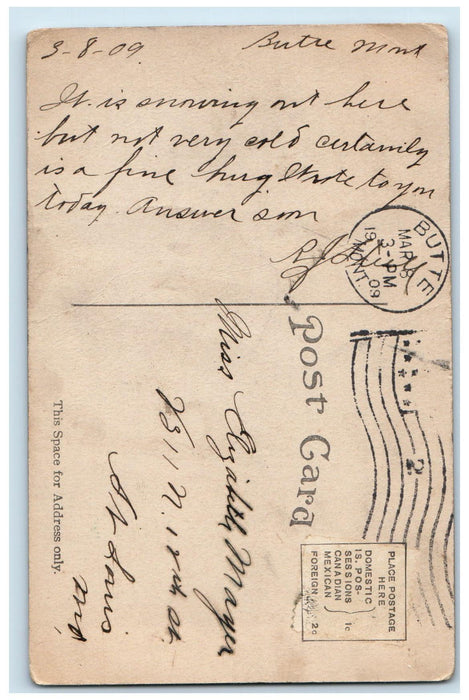 3-8-09 Butte Mont
It is snowing out here
but not very cold certainily
is a fine hug Wrote to you
today. Answer soon
BUTTE
MAR 8
3-PM
1909
MONT.
Post Card
Miss Elizabeth Mayer
N. 18th St.
St Louis
Mo
This Space for Address only.
2
PLACE POSTAGE
HERE
DOMESTIC
IS. POS-
SESSIONS
CANADIAN
MEXICAN
1c
FOREIGN 2c